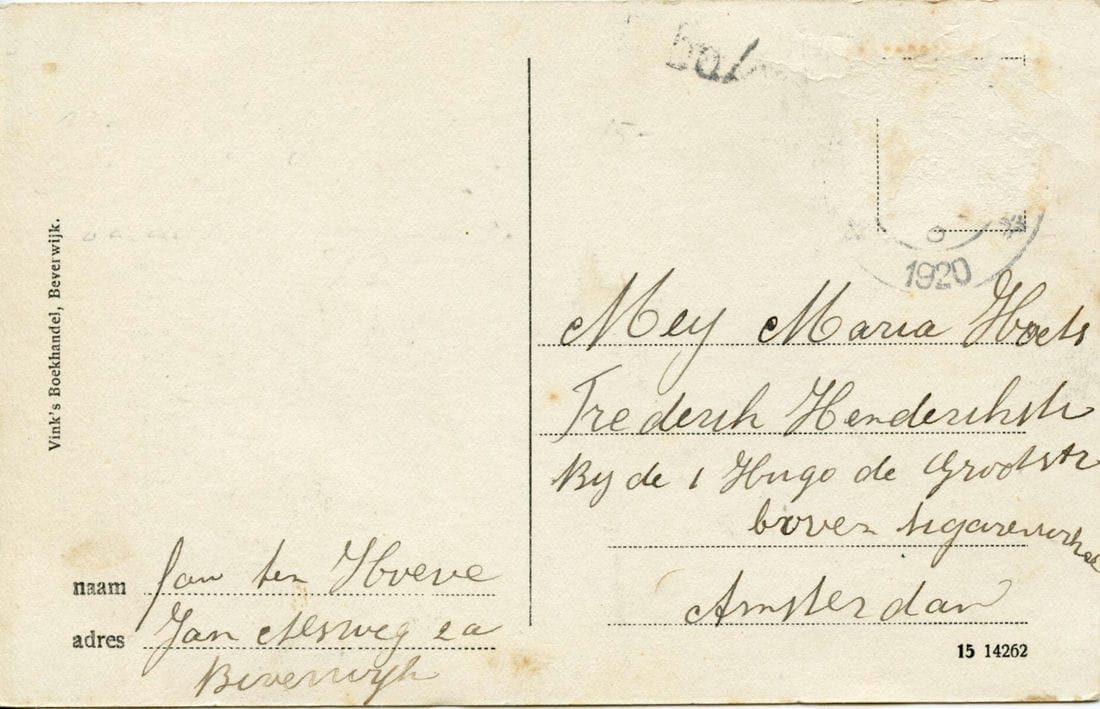 Vink's Boekhandel, Beverwijk.
1920
Mej Maria Hoets
Frederik Henderikstr
By de 1 Hugo de Grootstr
boven sigarenwinkel
Amsterdam
naam Jan ten Hoeve
adres Jan Alsweg 2a
Beverwijk
15 14262